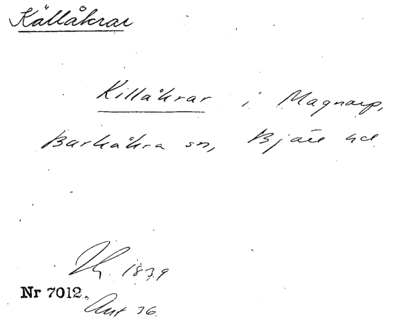 Källåkrar
Killåkrar i Magnarp,
Barkåkra sn, Bjäre hd
1839
Nr 7012.
Ant 36.